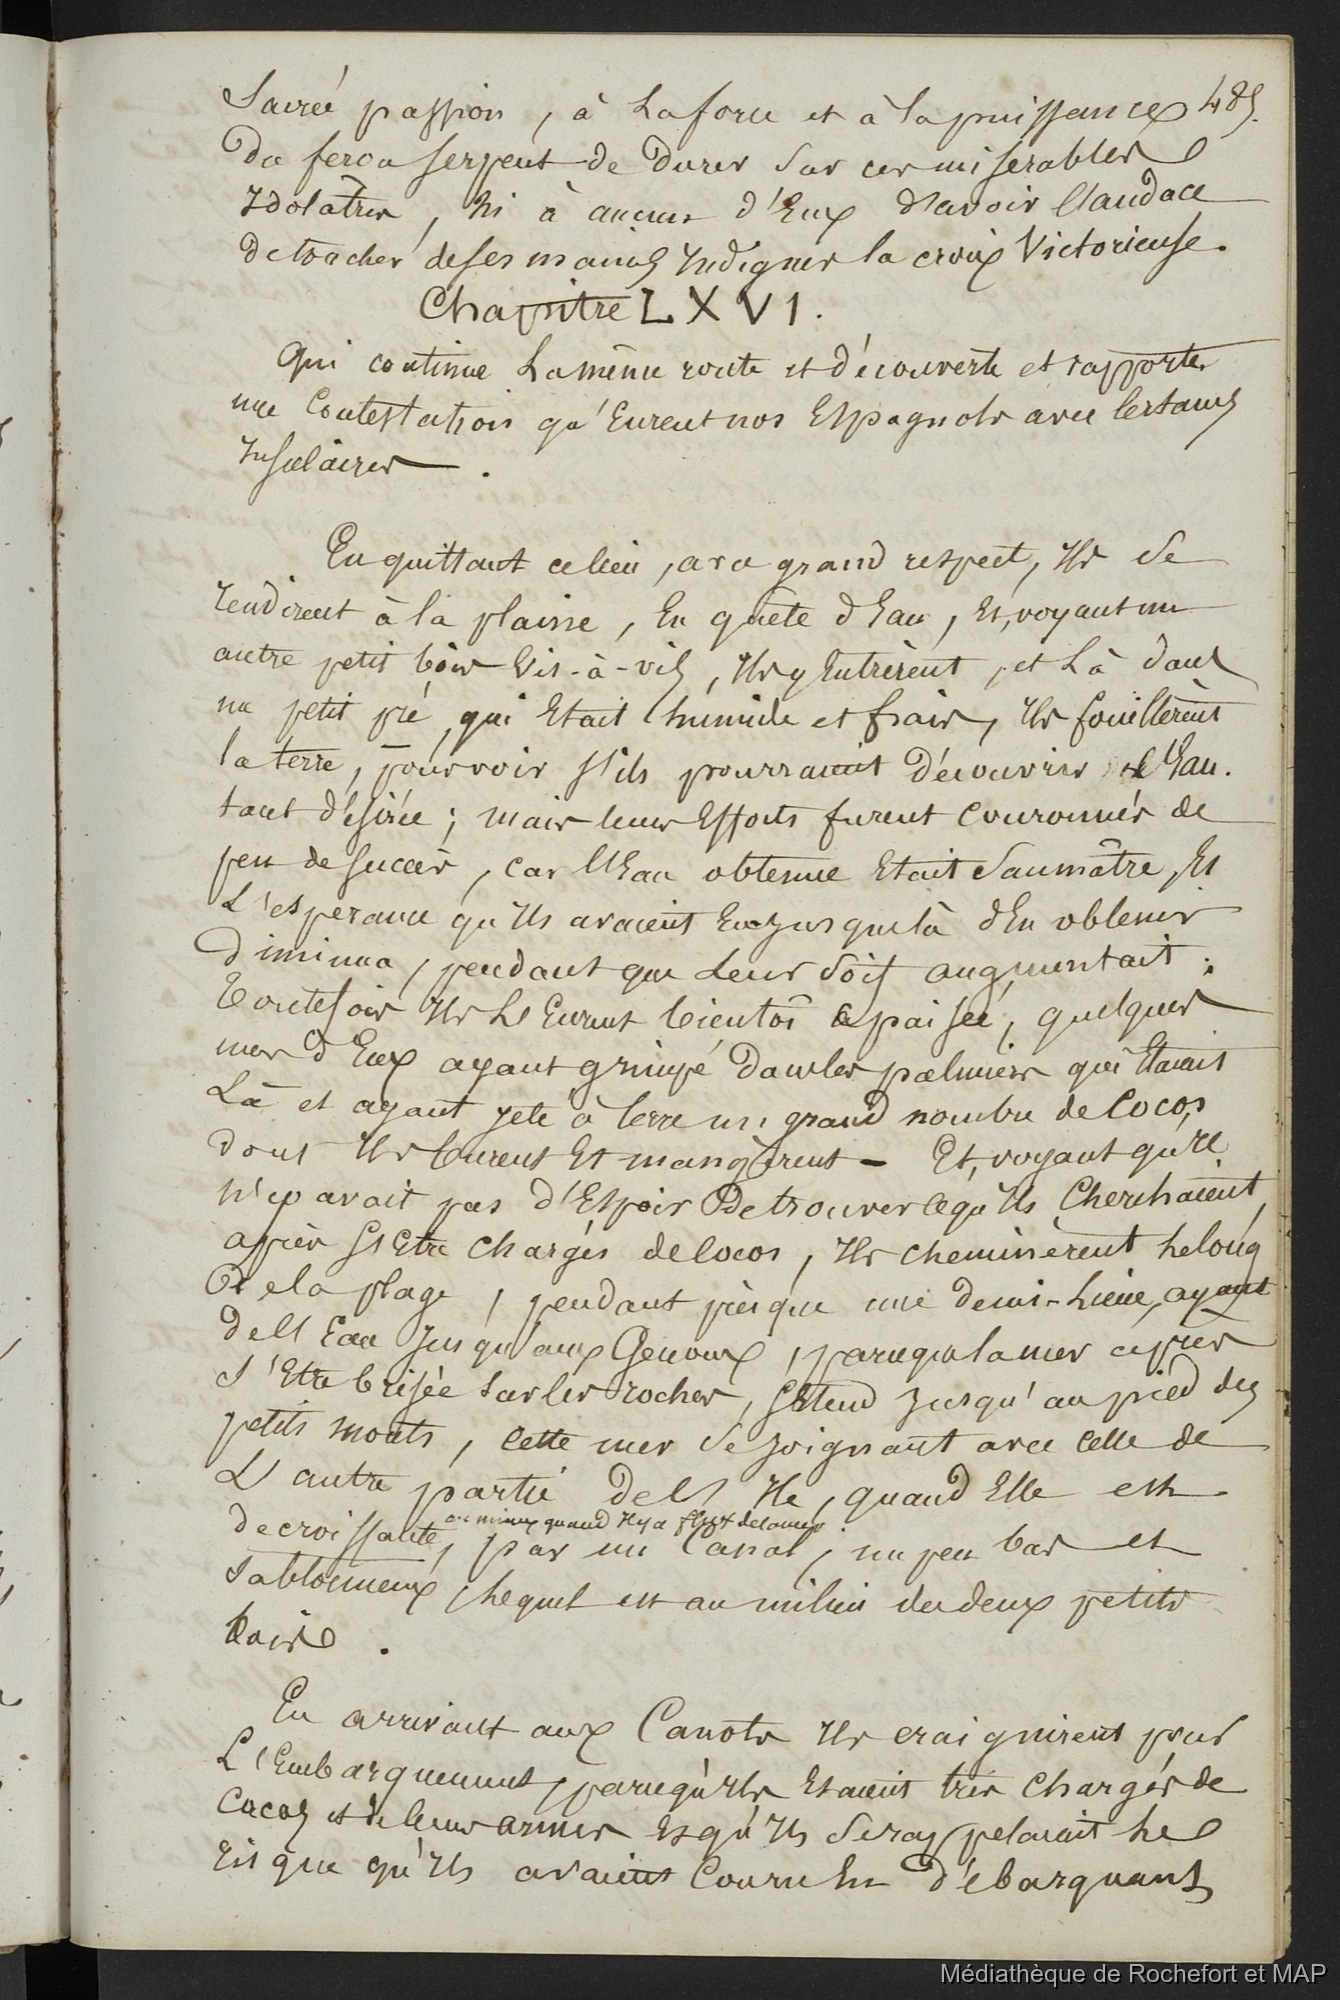 Sacrée passion, à la force et à la puissance 485.
du feroce serpent de durer sur ces miserables
Idolâtres, ni à aucuns d'Eux d'avoir l'audace
de toucher de ses mains Indignes la croix Victorieuse.
Chapitre LXVI.
Qui continue La même route et découverte et rapporte
une Contestation qu'Eurent nos Espagnols avec Certains
Insulaires.
En quittant ce lieu, avec grand respect, Ils se
rendirent à la plaine, En quête d'Eau, Et, voyant un
autre petit bois Vis-à-vis, Ils y Entrèrent, et Là dans
un petit pré, qui Etait humide et frais, Ils fouillèrent
la terre, pour voir s'ils pourraient découvrir l'Eau
tant désirée; mais leurs Efforts furent Couronnés de
peu de succès, car l'Eau obtenue Etait Saumâtre, Et
L'espérance qu'Ils avaient Eue jusque là d'En obtenir
diminua, pendant que Leur Soif augmentait;
Toutefois Ils L'Eurent bientôt apaisée, quelques
uns d'Eux ayant grimpé dans les palmiers qui Etaient
Là et ayant jeté à terre un grand nombre de Cocos,
dont Ils burent Et mangèrent - Et, voyant qu'Il
n'y avait pas d'Espoir De trouver ce qu'Ils Cherchaient,
après s'Etre Chargés de Cocos, Ils cheminèrent Le long
De la plage, pendant près que une demi-Lieue, ayant
de l'Eau Jusqu'aux Genoux, parceque la mer après
s'Etre brisée sur les rocher, s'Etend jusqu'au pied des
petits monts, cette mer se joignant avec celle de
L'autre partie de l'Ile, quand Elle est
ou mieux quand Il y a flux de la mer
decroissante, par un Canal, un peu bas et
sablonneux, Lequel est au milieu des deux petits
bois.
En arrivant aux Canots Ils craignirent pour
L'Embarquement, parcequ'Ils Etaient très Chargés de
Cocos et de leurs armes Et qu'Ils se rappelaient Le
risque qu'Ils avaient Couru En débarquant,